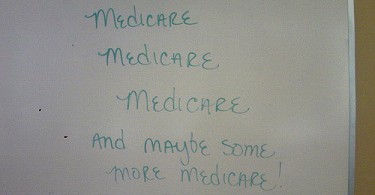 MEDICARE
MEDICARE
MEDICARE
AND MAYBE SOME
MORE MEDICARE!